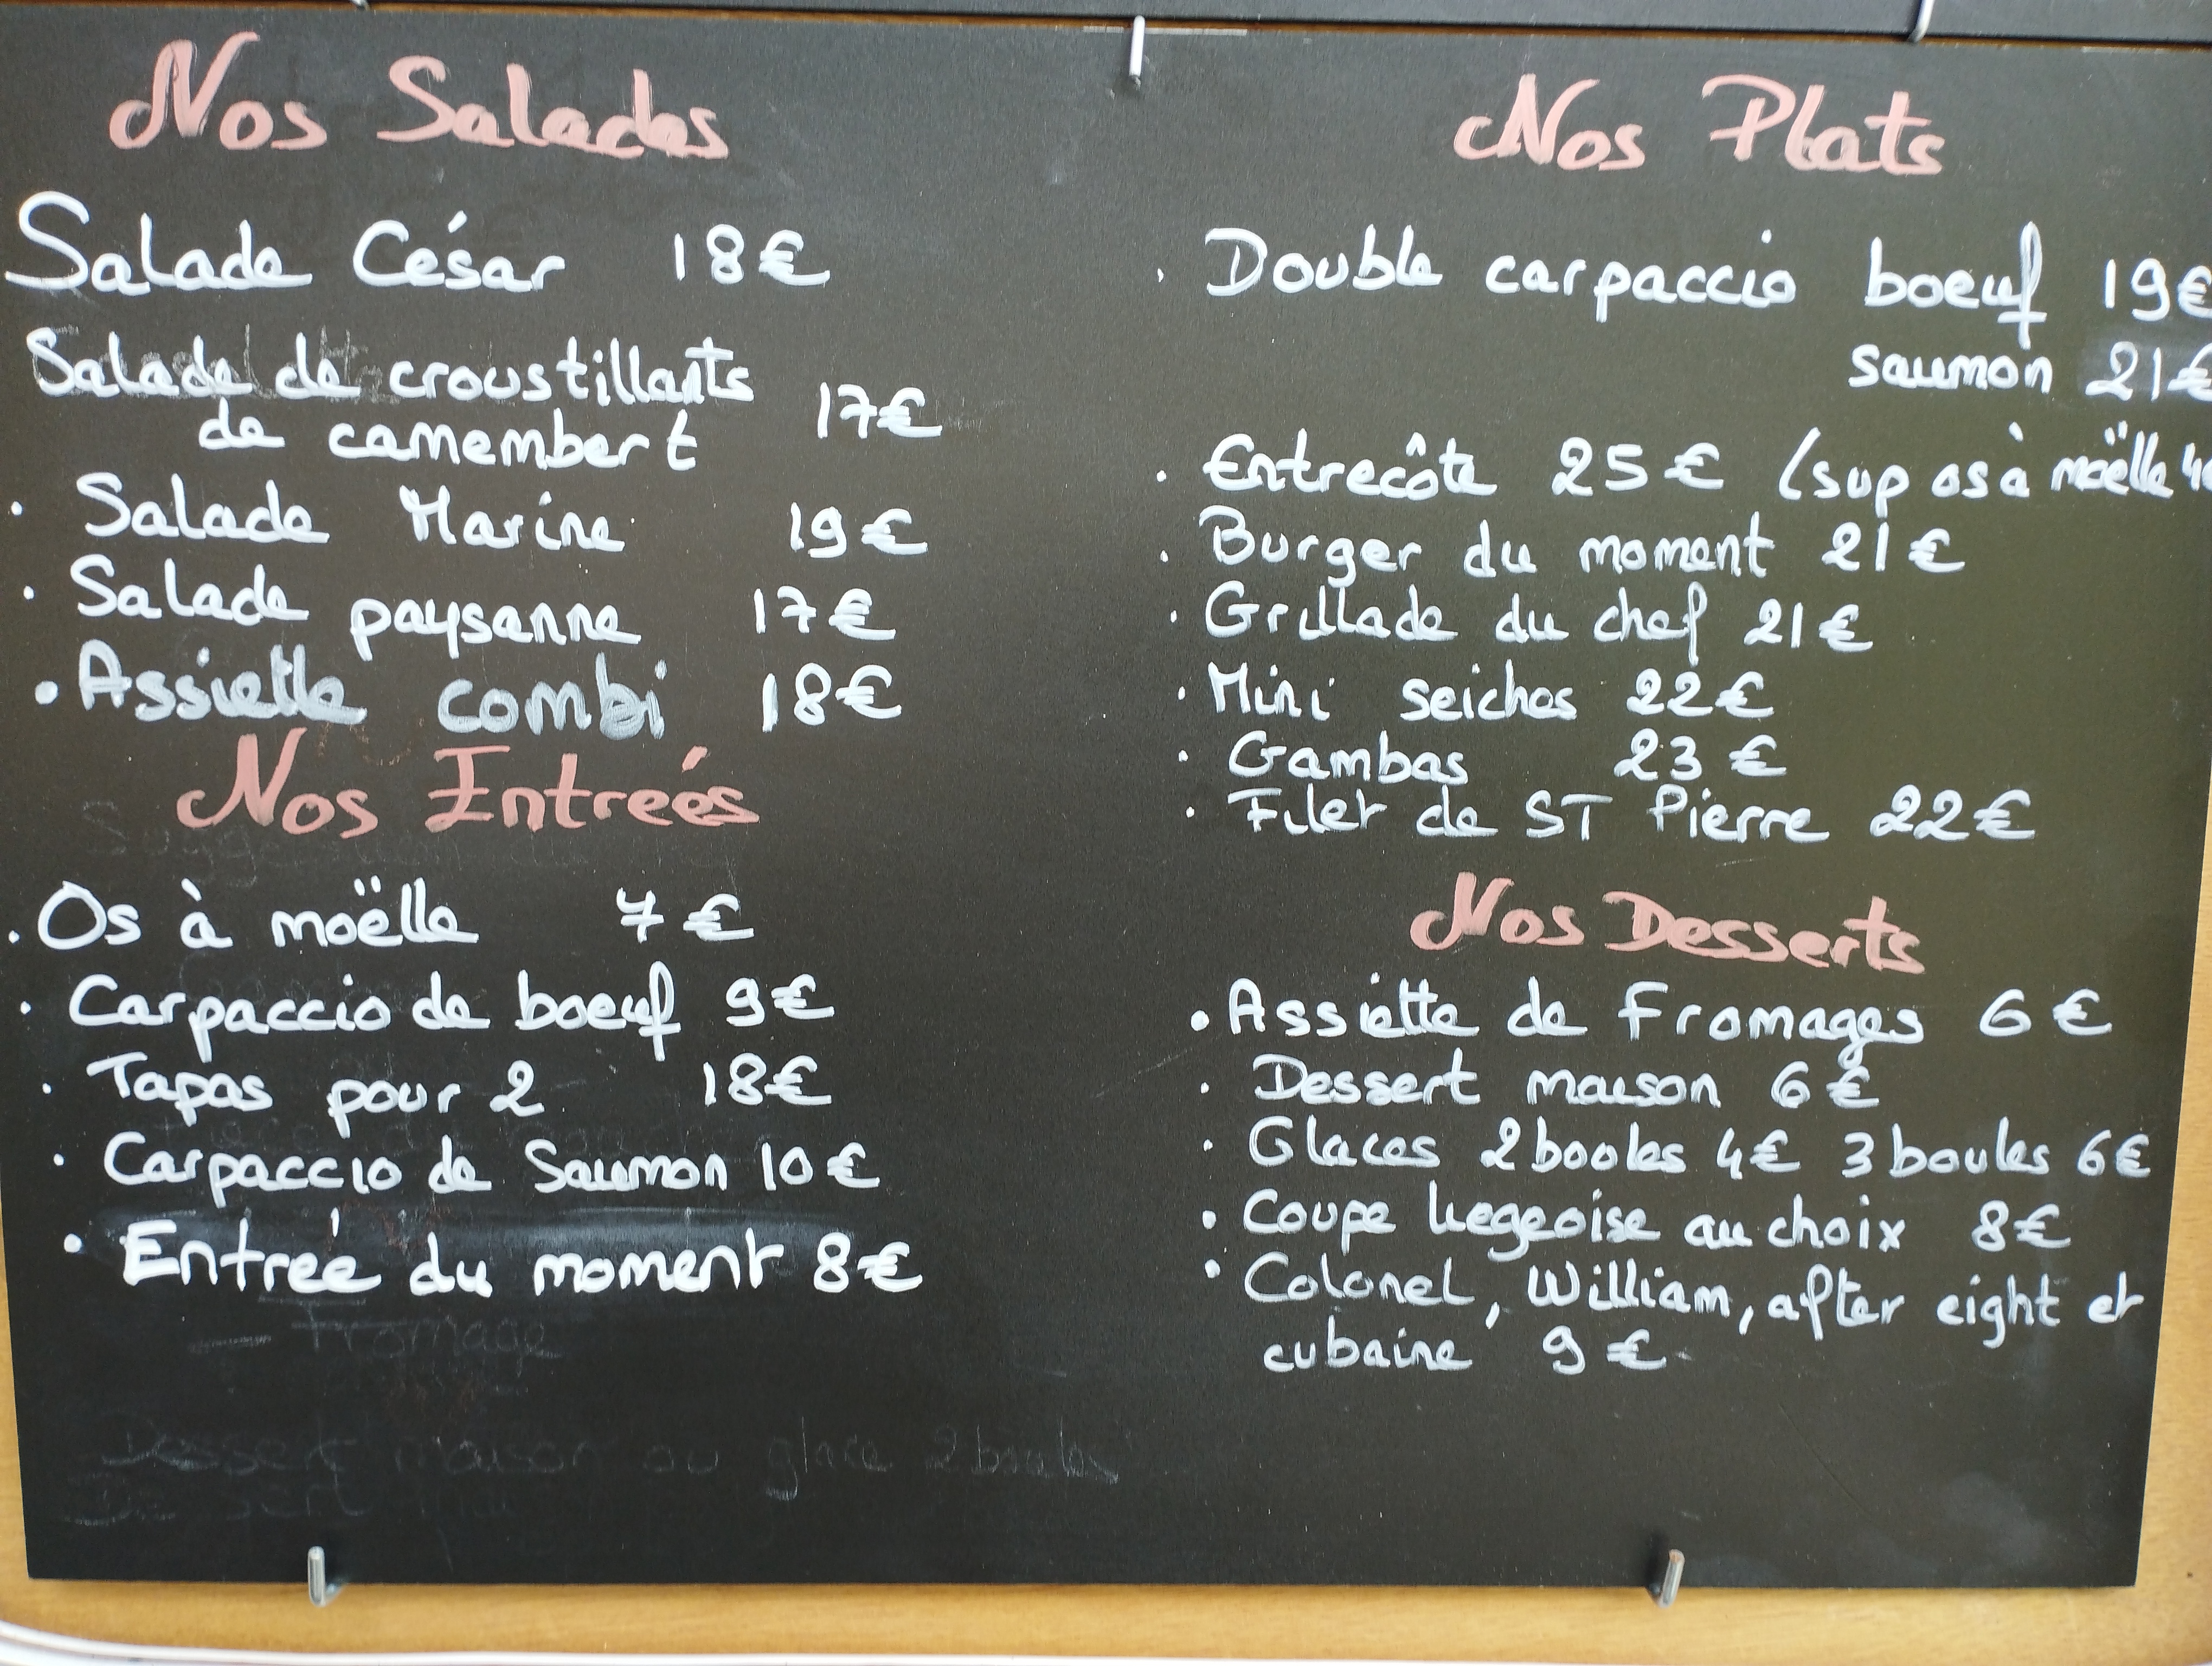 Nos Salades
Salade César 18€
Salade de croustillants
de camembert 17€
• Salade Marine 19€
• Salade paysanne 17€
• Assiette combi 18€
Nos Entreés
• Os à moëlle 7€
• Carpaccio de boeuf 9€
• Tapas pour 2 18€
• Carpaccio de Saumon 10€
• Entreé du moment 8€
Fromage
Dessert maison ou glace 2 boules
Nos Plats
• Double carpaccio boeuf 19€
saumon 21€
• Entrecôte 25€ (sup os à moëlle 4€
• Burger du moment 21€
• Grillade du chef 21€
• Mini seiches 22€
• Gambas 23€
• Filet de ST Pierre 22€
Nos Desserts
• Assiette de Fromages 6€
• Dessert maison 6€
• Glaces 2 boules 4€ 3 boules 6€
• Coupe liegeoise au choix 8€
• Colonel, William, after eight et
cubaine 9€